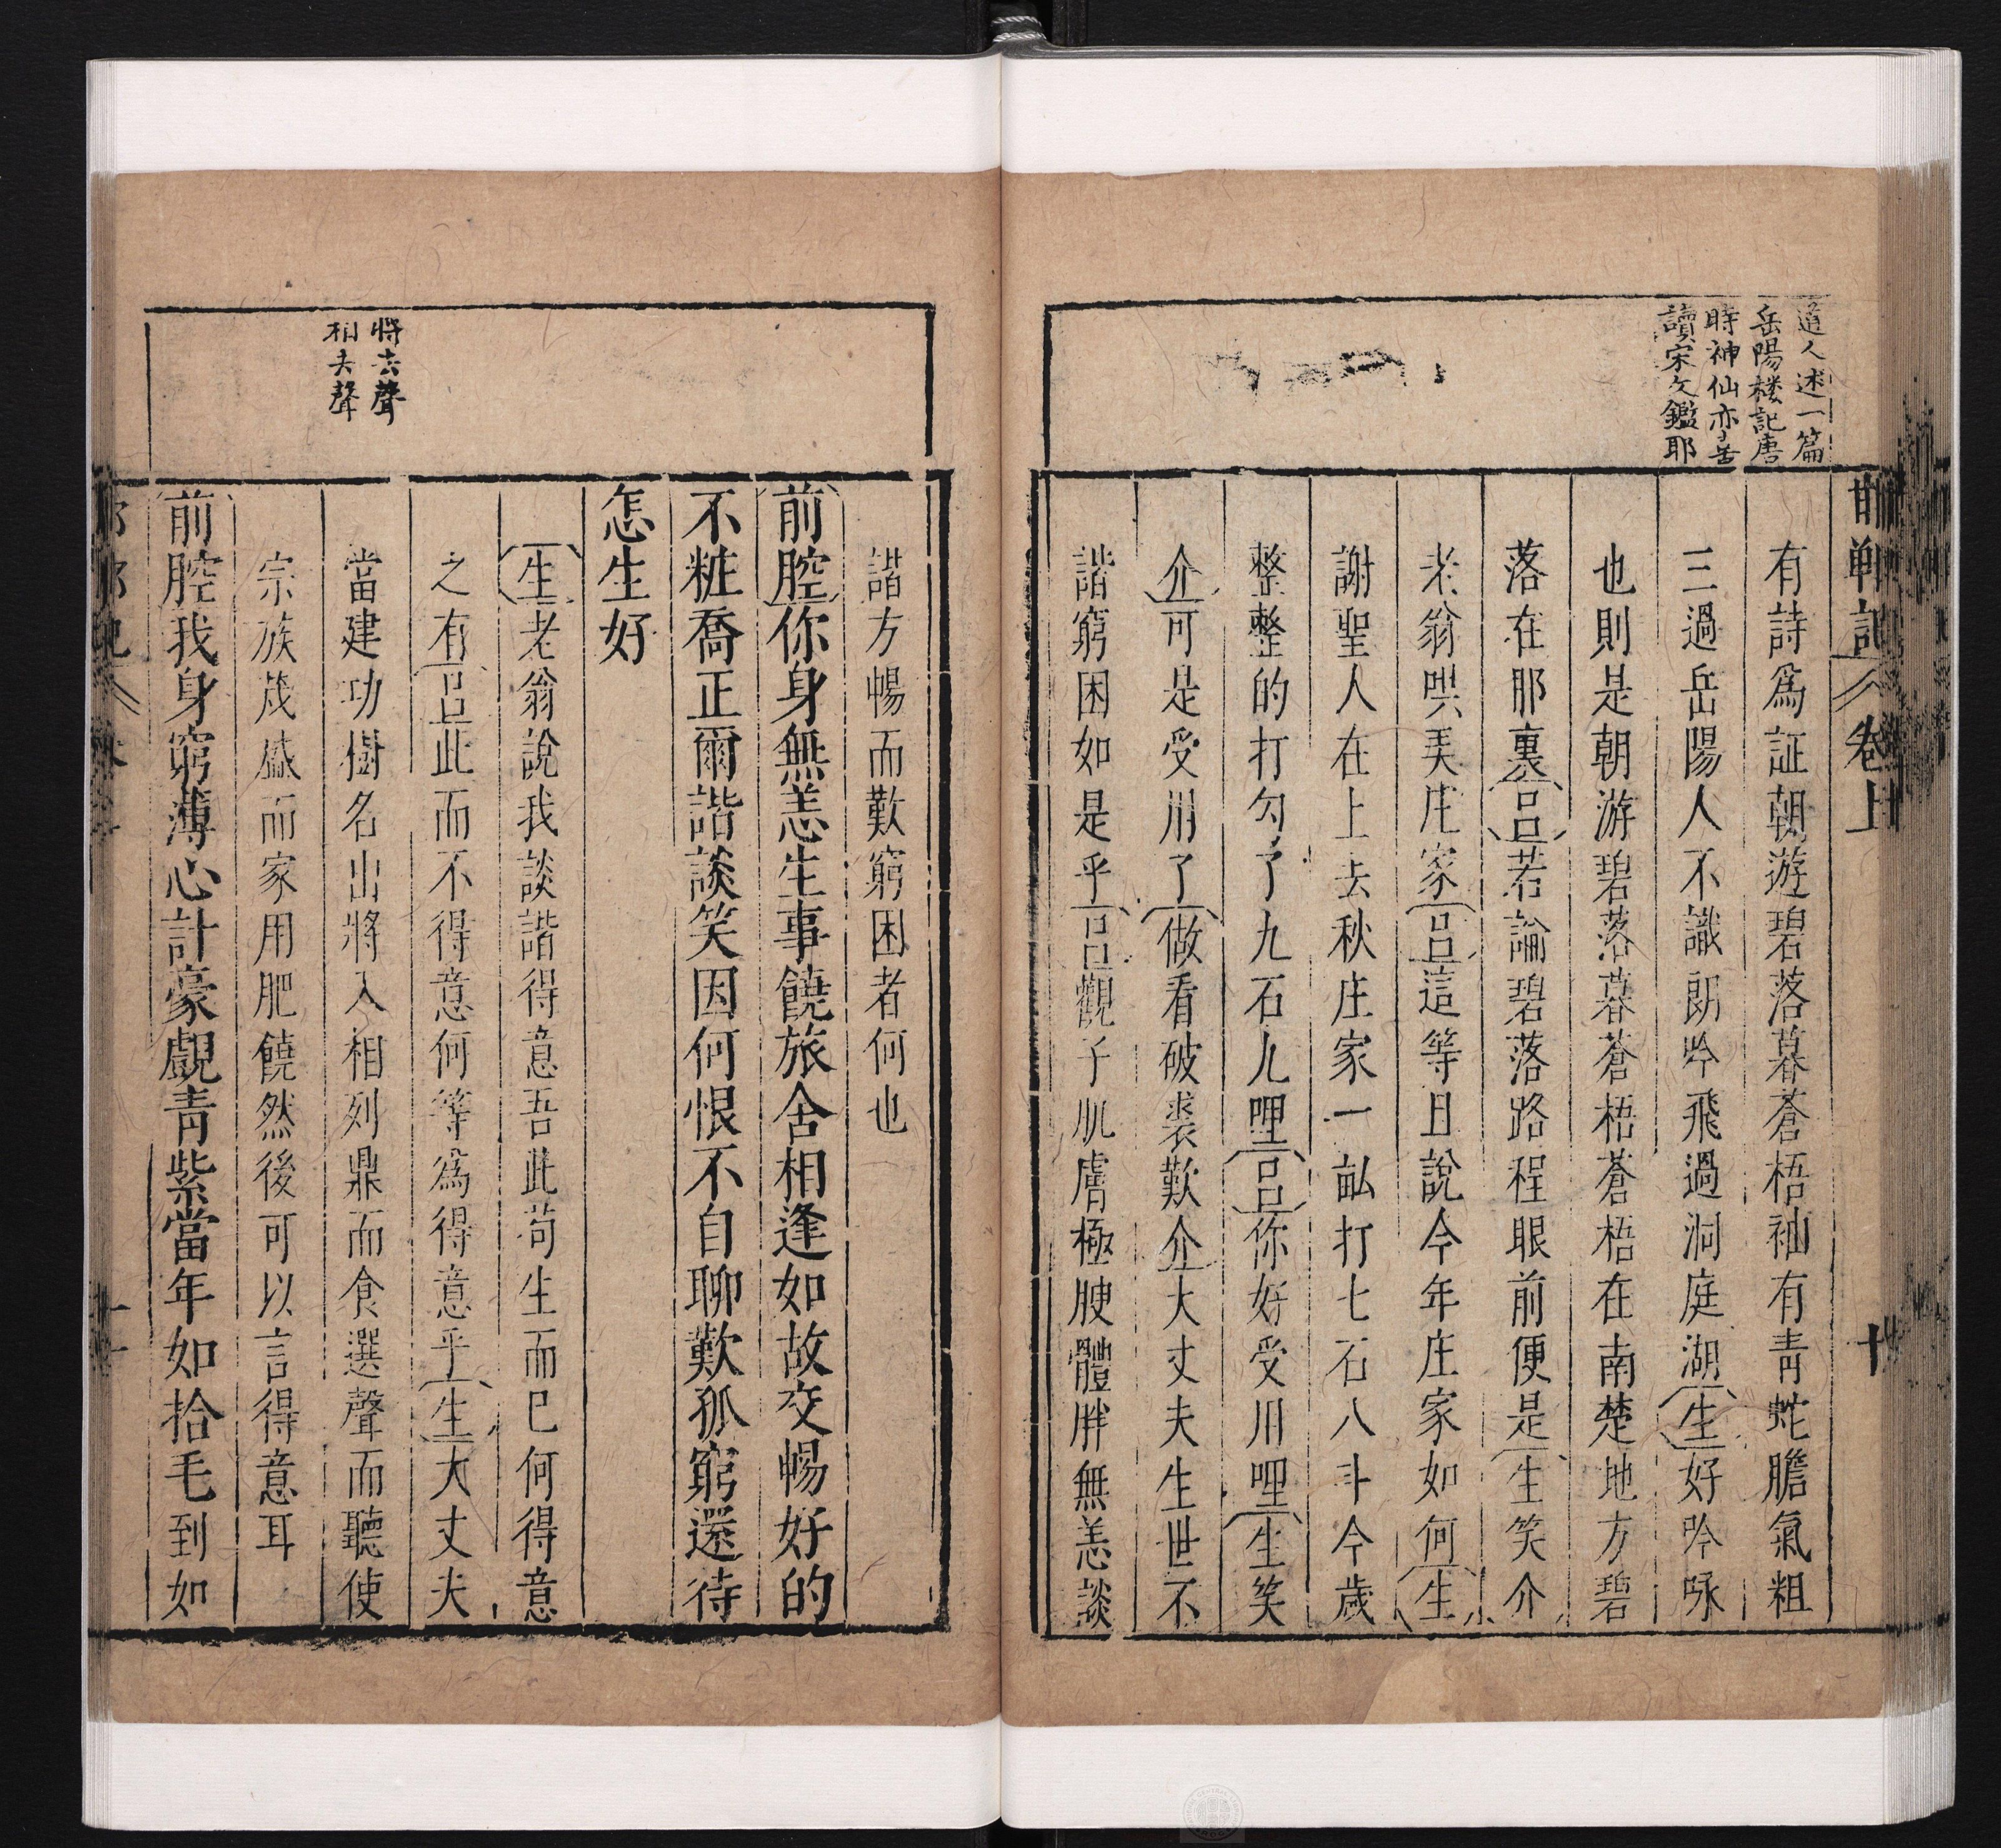 邯鄲記 卷上 十
道人述一篇
岳陽楼記唐
時神仙亦善
讀宋文鑑耶
有詩爲証朝遊碧落暮蒼梧袖有青蛇膽氣粗
三過岳陽人不識朗吟飛過洞庭湖生好吟咏
也則是朝游碧落暮蒼梧蒼梧在南楚地方碧
落在那裏呂若論碧落路程眼前便是生笑介
老翁哄弄庄家呂這等且說今年庄家如何生
謝聖人在上去秋庄家一畝打七石八斗今歲
整整的打勾了九石九哩呂你好受用哩生笑
介可是受用了做看破裘歎介大丈夫生世不
諧窮困如是乎呂觀子肌膚極腴體胖無恙談
諧方暢而歎窮困者何也
前腔你身無恙生事饒旅舍相逢如故交暢好的
不粧喬正爾諧談笑因何恨不自聊歎孤窮還待
怎生好
生老翁說我談諧得意吾此苟生而已何得意
之有呂此而不得意何等爲得意乎生大丈夫
將去聲
相去聲
當建功樹名出將入相列鼎而食選聲而聽使
宗族茂盛而家用肥饒然後可以言得意耳
前腔我身窮薄心計豪覷青紫當年如拾毛到如